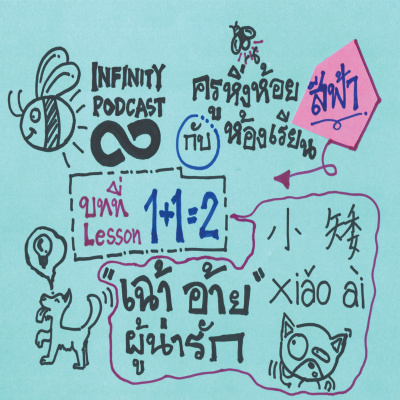 INFINITY
PODCAST
ครูหิ่งห้อย
กับ ห้องเรียน
สีฟ้า
บทที่
Lesson 1+1=2
小 矮
xiǎo ǎi
"เฉ้า อ้าย"
ผู้น่ารัก